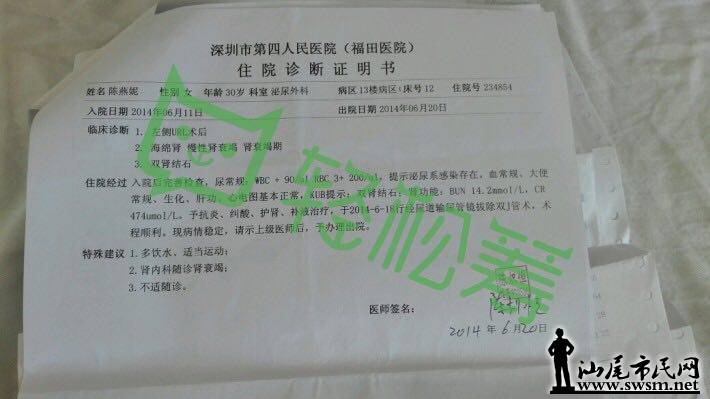 深圳市第四人民医院（福田医院）
住院诊断证明书
姓名 陈燕妮 性别 女 年龄 30岁 科室 泌尿外科 病区 13楼病区 床号 12 住院号 234854
入院日期 2014年06月11日 出院日期 2014年06月20日
临床诊断 1. 左侧URL术后
2. 海绵肾 慢性肾衰竭 肾衰竭期
3. 双肾结石
住院经过 入院后完善检查，尿常规：WBC + 90/ul RBC 3+ 200/ul，提示泌尿系感染存在，血常规、大便
常规、生化、肝功、心电图基本正常，KUB提示：双肾结石；肾功能：BUN 14.2mmol/L，CR
474umol/L，予抗炎、纠酸、护肾、补液治疗，于2014-6-18行经尿道输尿管镜拔除双J管术，术
程顺利。现病情稳定，请示上级医师后，予办理出院。
特殊建议 1. 多饮水、适当运动；
2. 肾内科随诊肾衰竭；
3. 不适随诊。
医师签名：
2014 年 6月20日
轻松筹
汕尾市民网
www.swsm.net